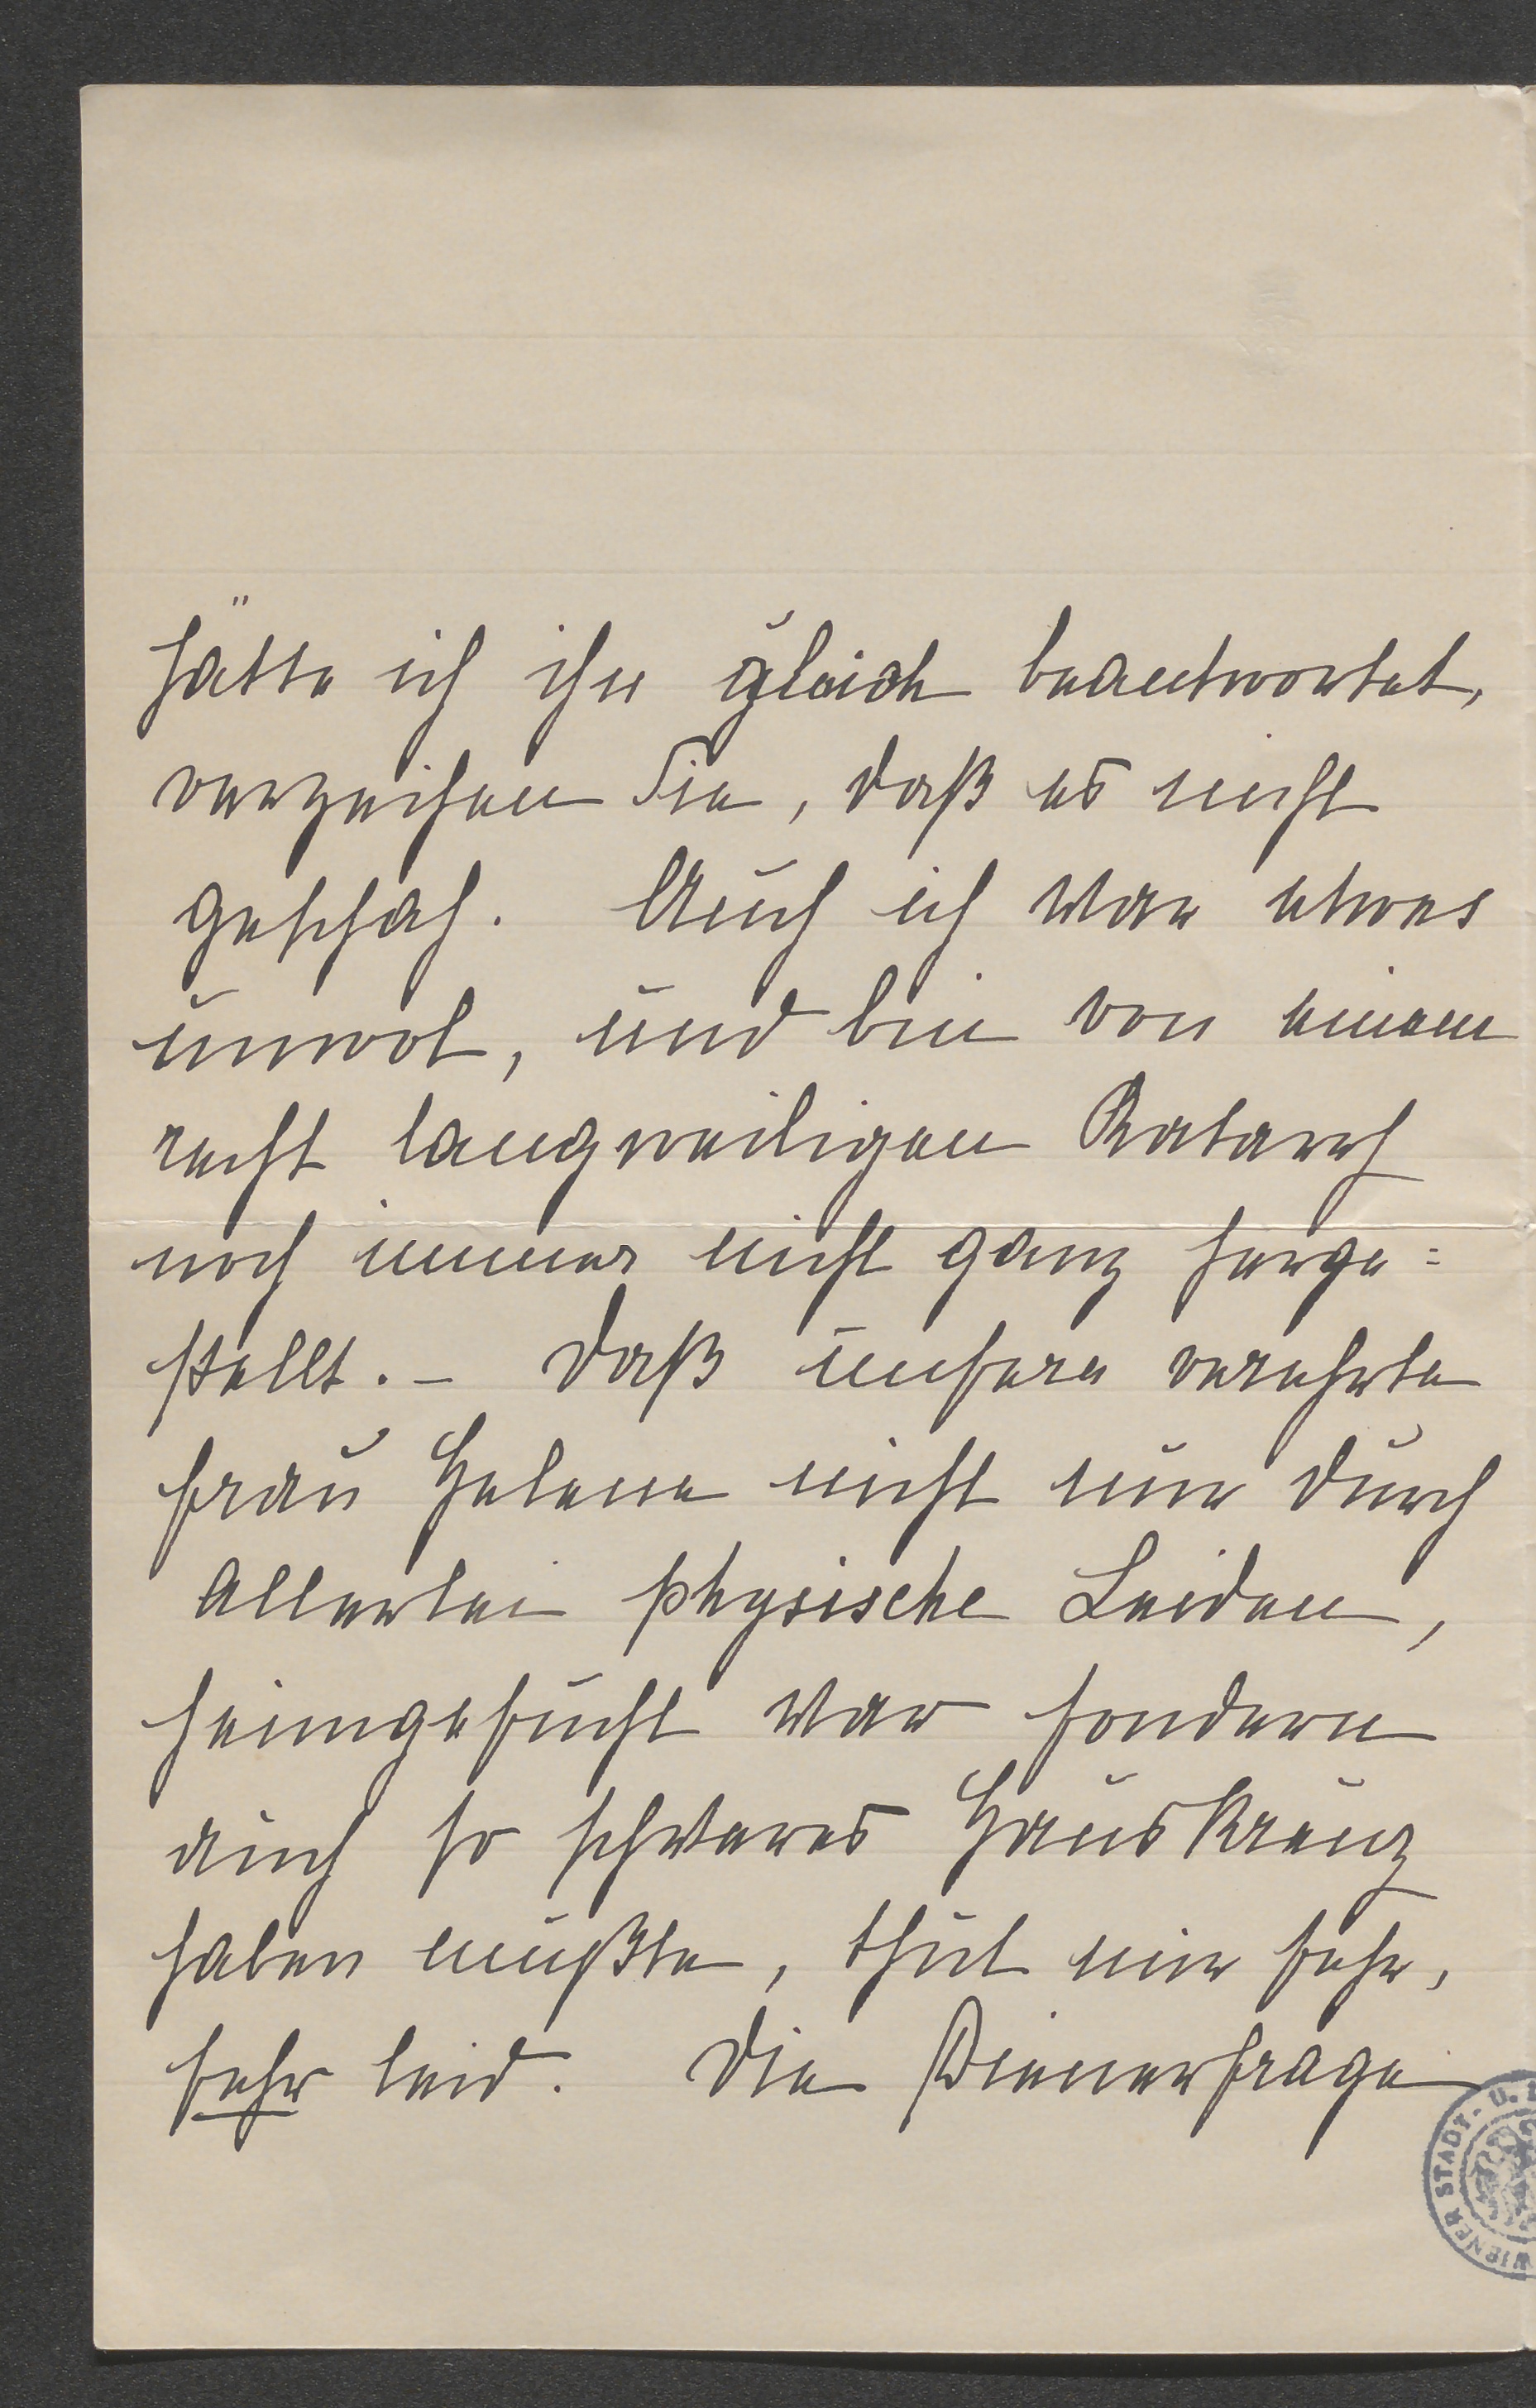 hätte ich ihn gleich beantwortet,
verzeihen Sie, daß es nicht
geschah. Auch ich war etwas
unwol, und bin von einem
recht langweiligen Katarrh
noch immer nicht ganz herge=
stellt. – Daß unsere verehrte
Frau Helene nicht nur durch
allerlei physische Leiden,
heimgesucht war sondern
auch so schweres Hauskreuz
haben mußte, thut mir sehr,
sehr leid. Die Dienerfrage
WIENER STADT- U.